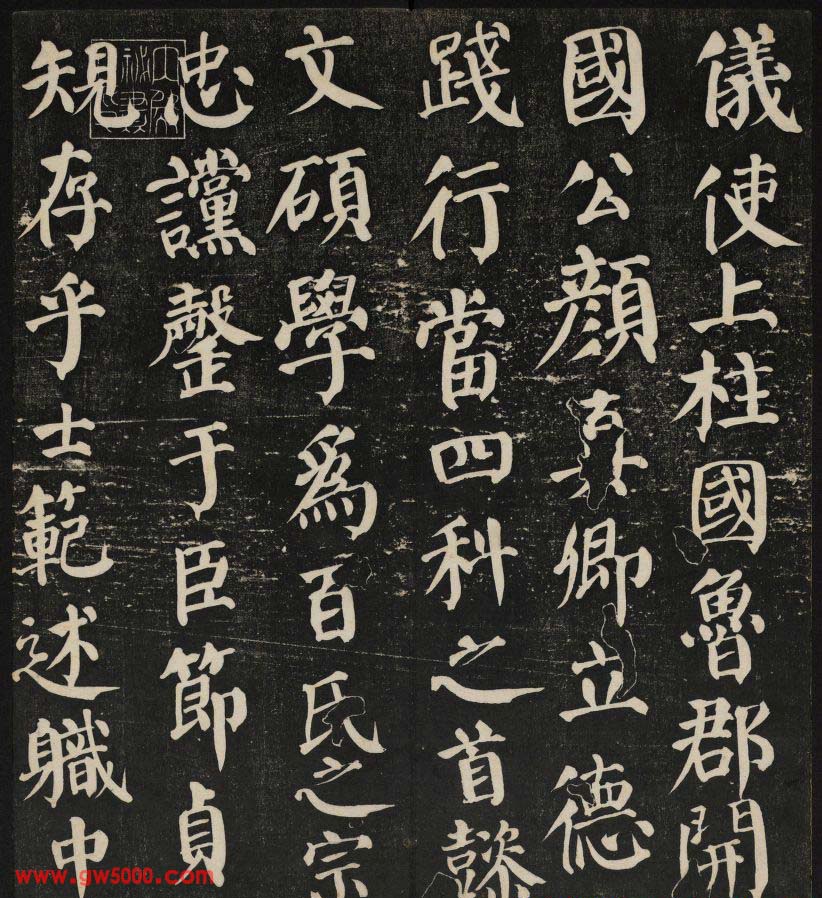 儀使上柱國魯郡開
國公顏真卿立德
踐行當四科之首懿
文碩學為百氏之宗
忠讜罄于臣節貞
規存乎士範述職中
www.gw5000.com